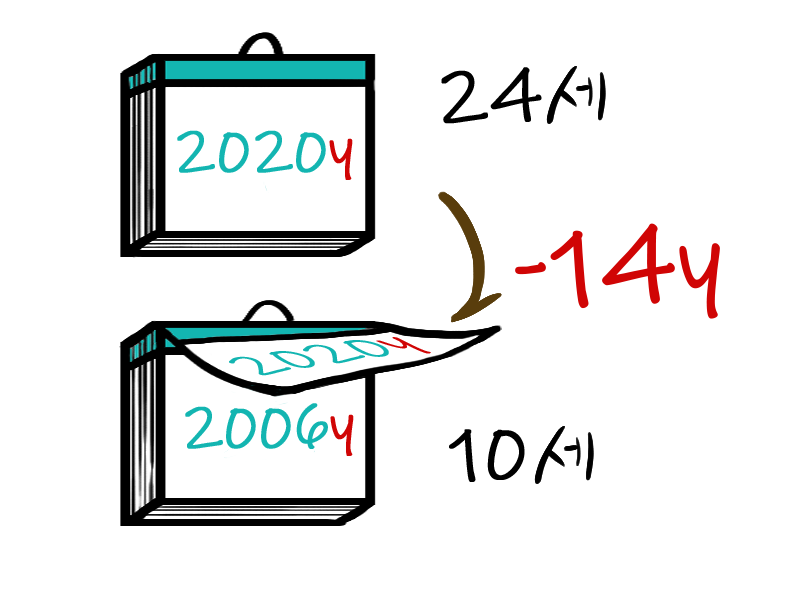 2020y
24세
-14y
2020y
2006y
10세